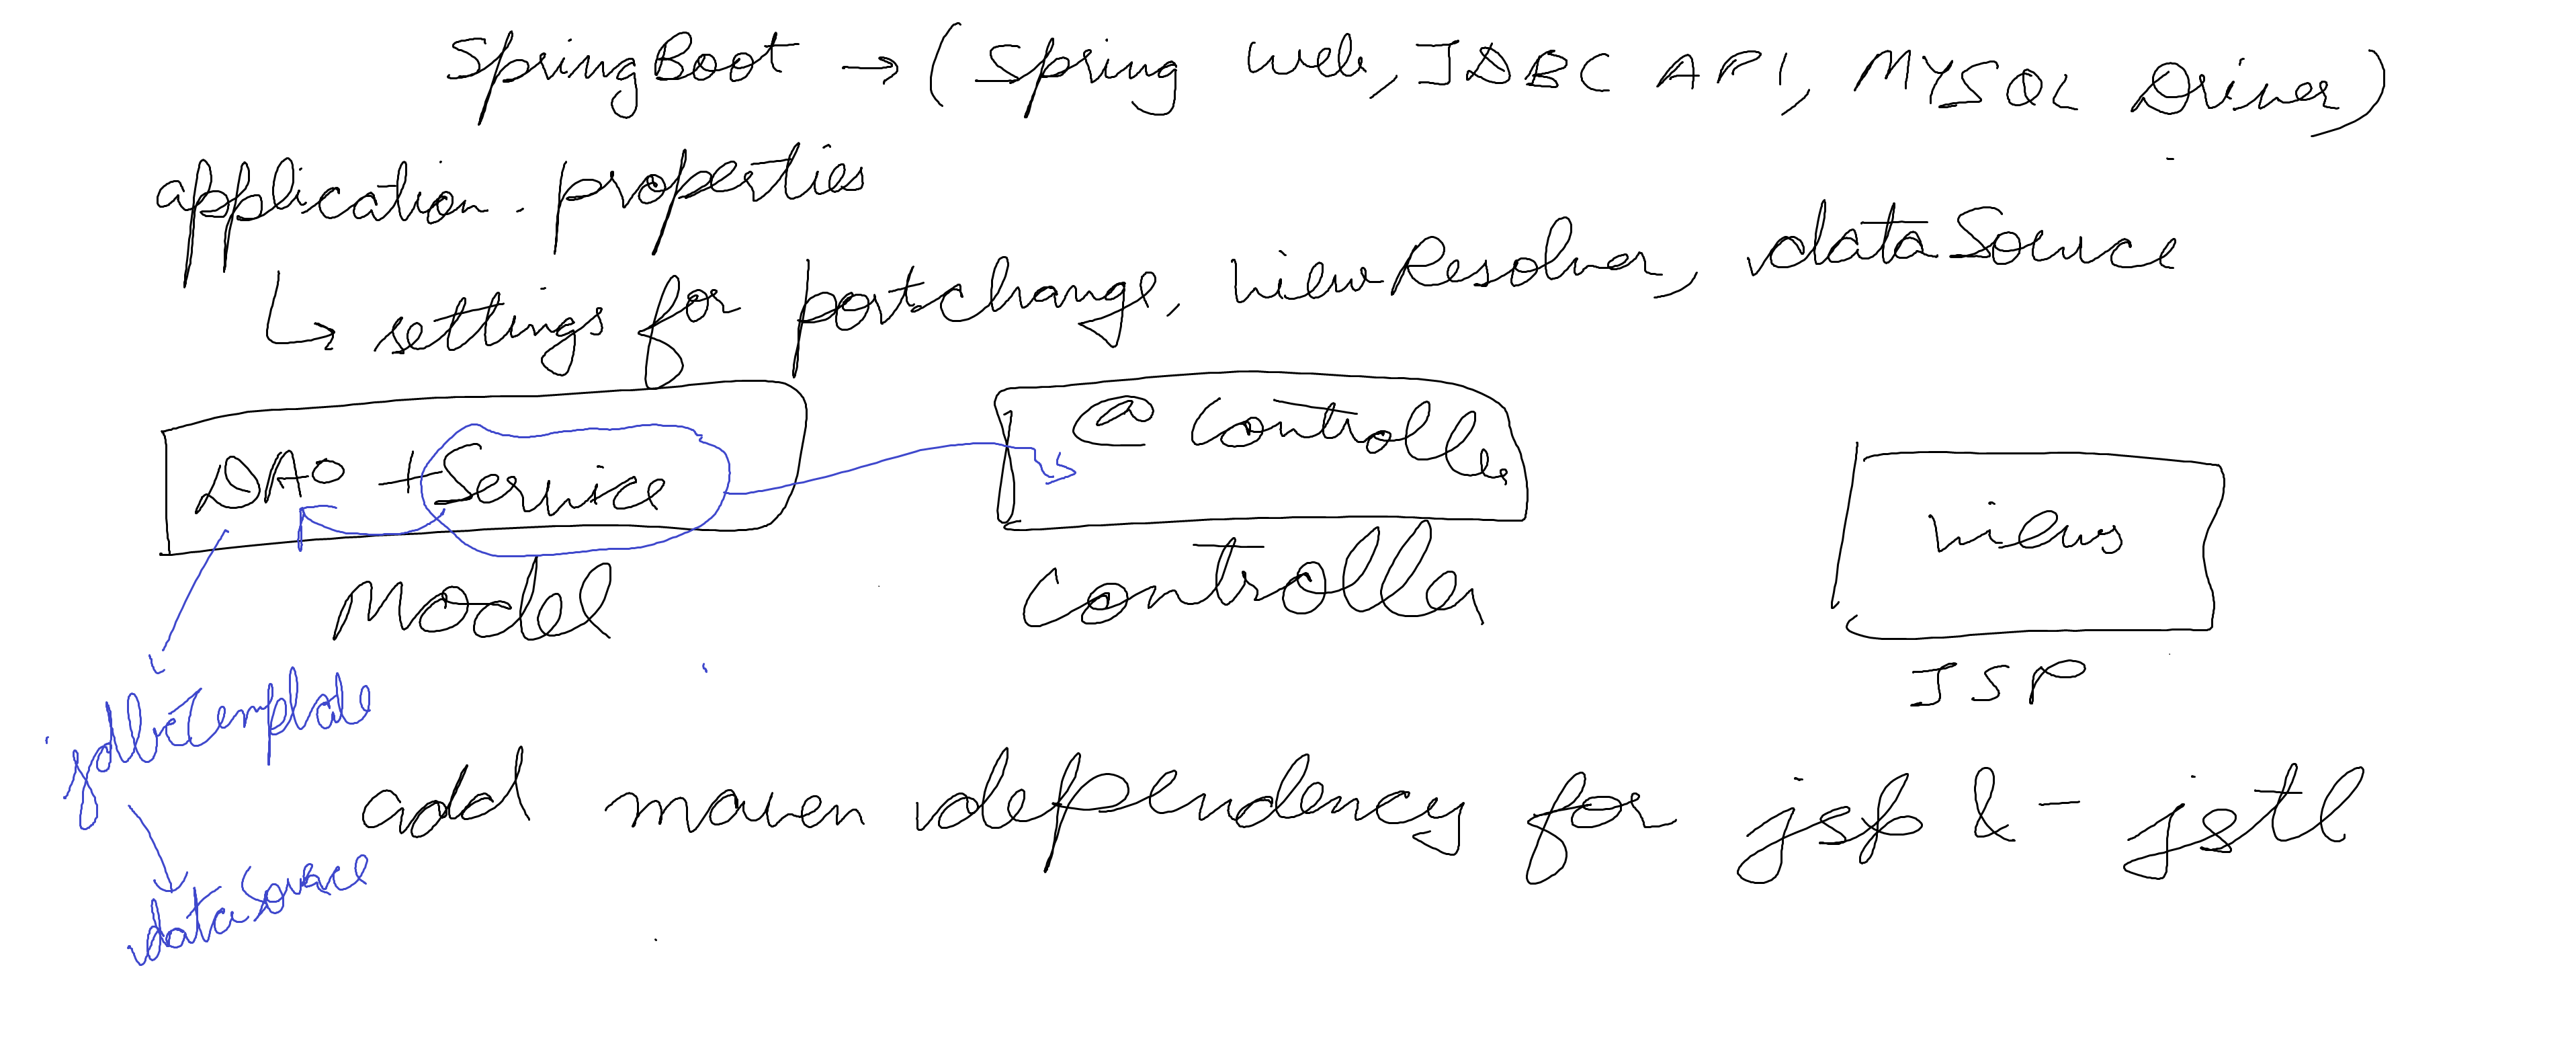 SpringBoot → (Spring Web, JDBC API, MYSQL Driver)
application.properties
↳ settings for portchange, viewResolver, dataSource
DAO + Service
@Controller
views
Model
Controller
JSP
jdbcTemplate
add maven dependency for jsp & jstl
dataSource